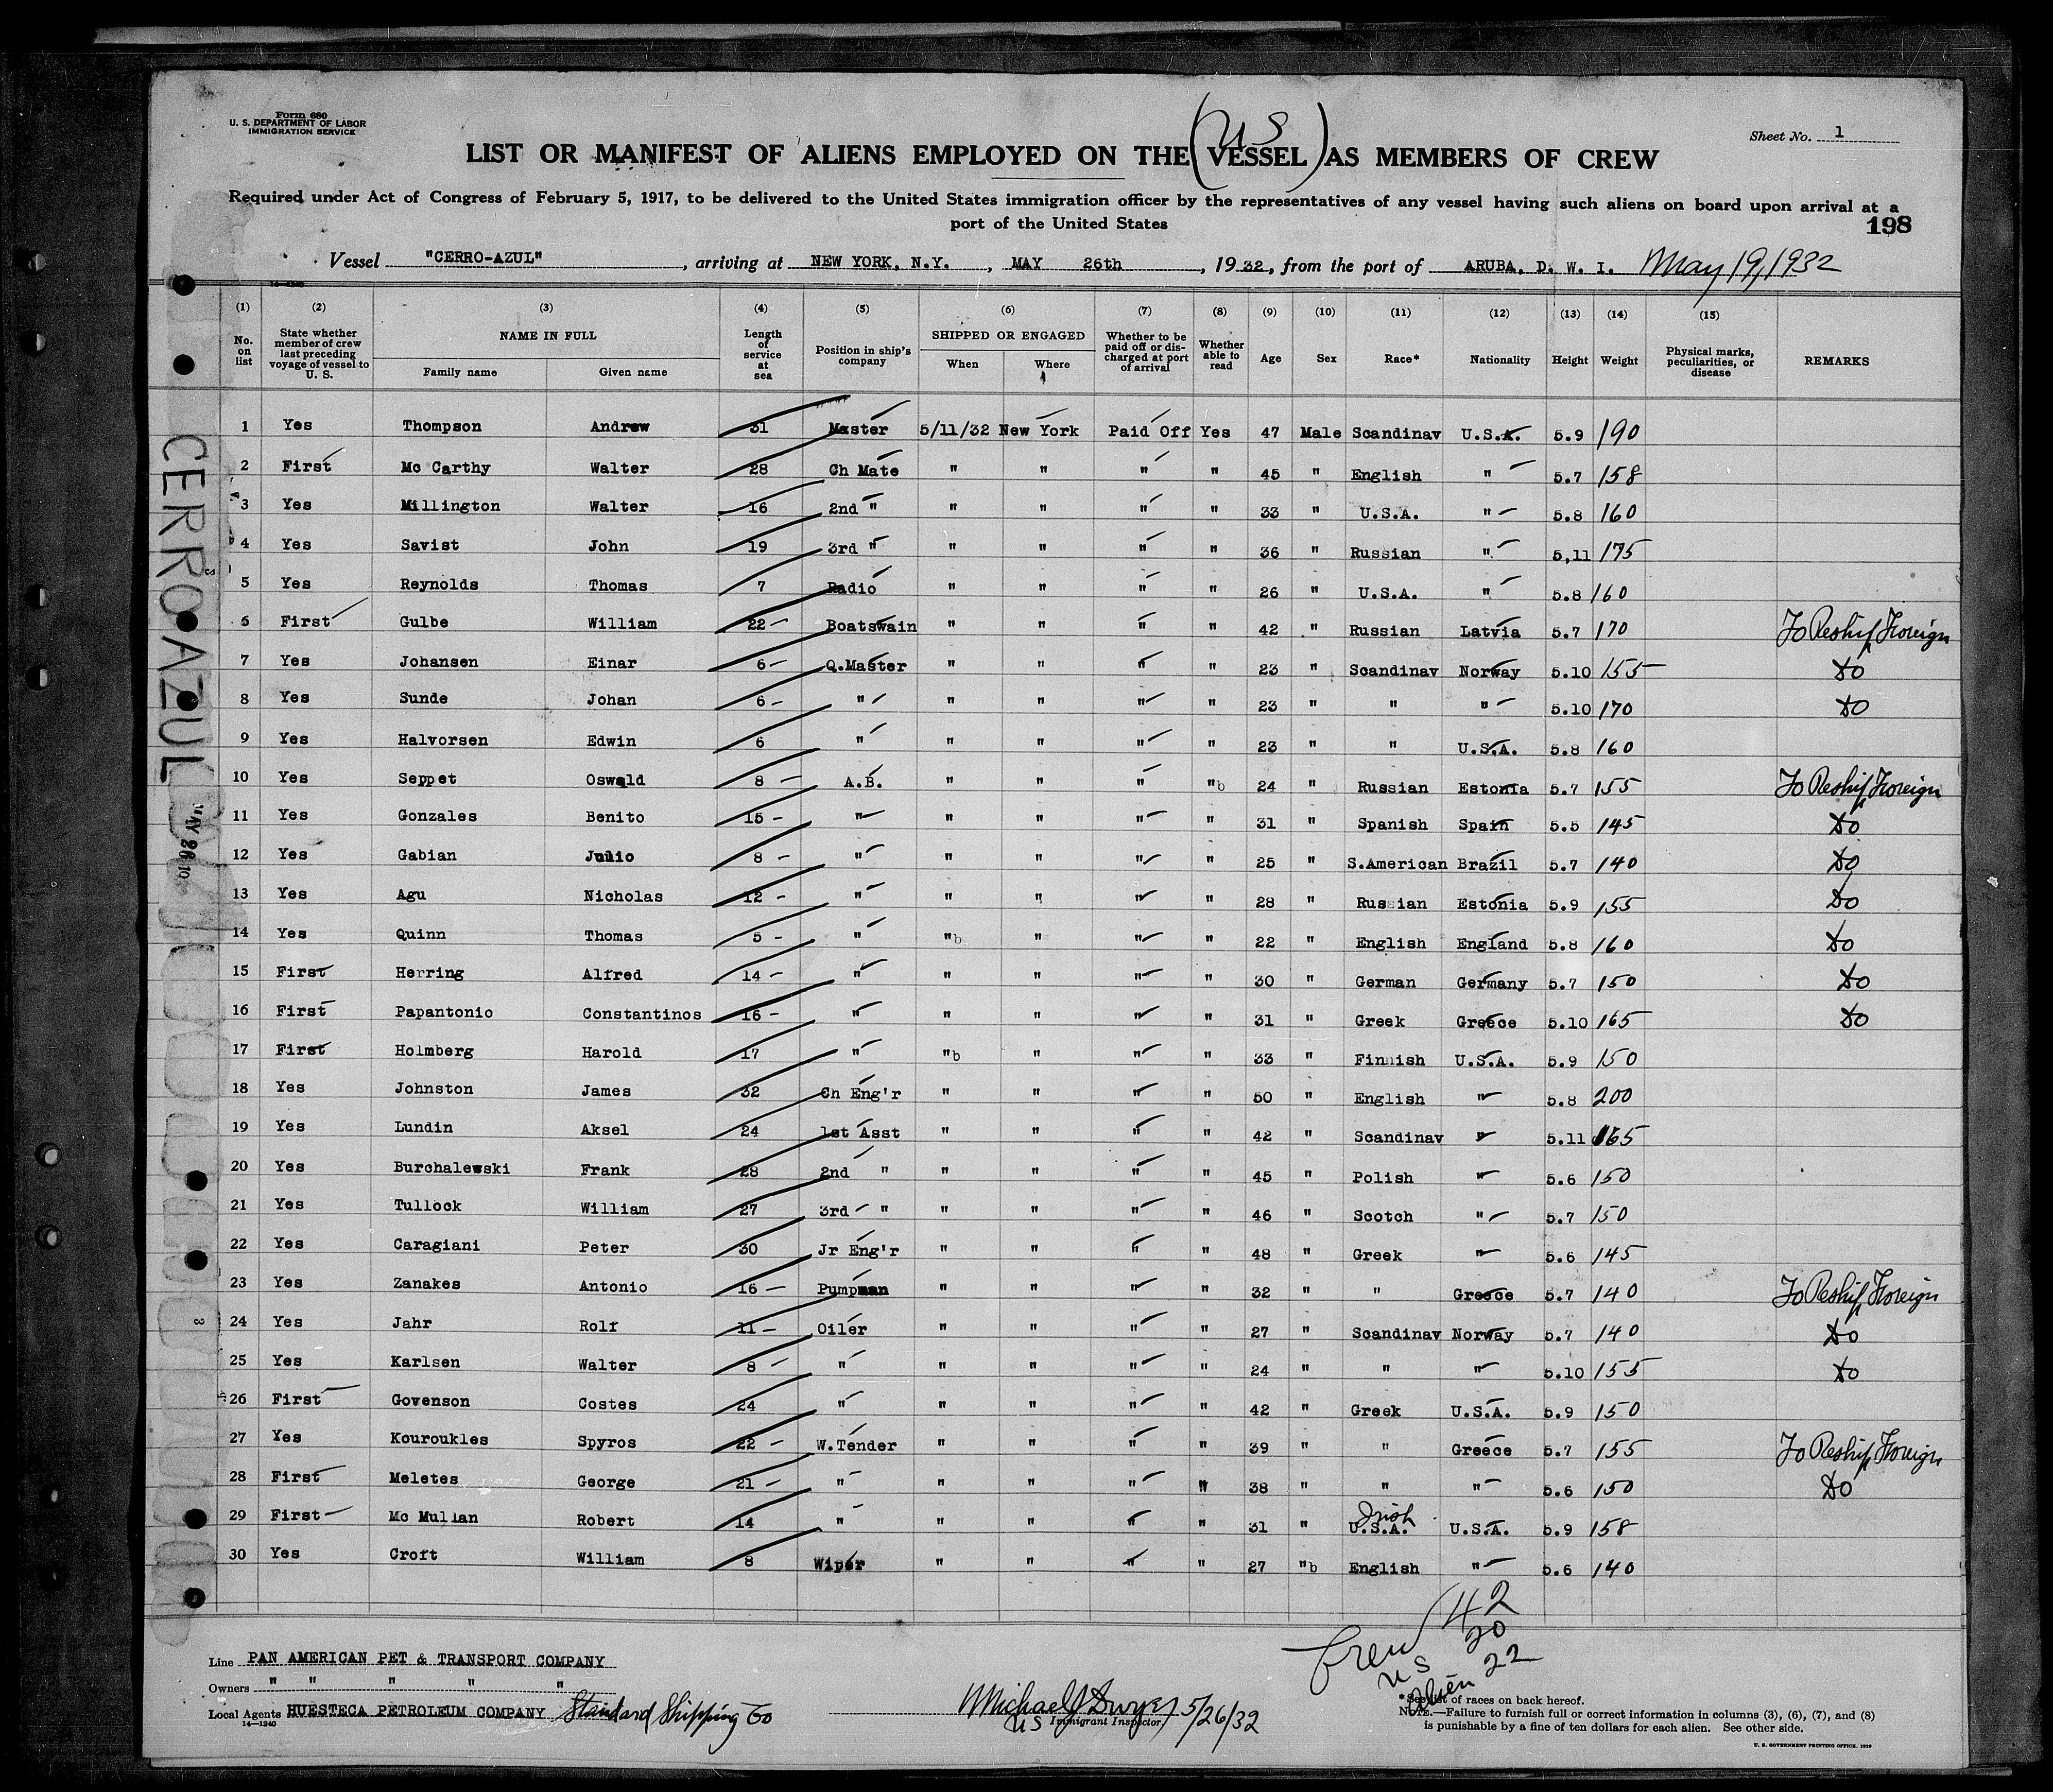 Form 680
U. S. DEPARTMENT OF LABOR
IMMIGRATION SERVICE
Sheet No. 1
(US)
LIST OR MANIFEST OF ALIENS EMPLOYED ON THE VESSEL AS MEMBERS OF CREW
Required under Act of Congress of February 5, 1917, to be delivered to the United States immigration officer by the representatives of any vessel having such aliens on board upon arrival at a
port of the United States
198
Vessel "CERRO-AZUL", arriving at NEW YORK, N.Y., MAY 26th, 1932, from the port of ARUBA, D. W. I. May 19, 1932
14—1240
(1) (2) (3) (4) (5) (6) (7) (8) (9) (10) (11) (12) (13) (14) (15)
No. on list State whether member of crew last preceding voyage of vessel to U. S. NAME IN FULL Family name Given name Length of service at sea Position in ship's company SHIPPED OR ENGAGED When Where Whether to be paid off or discharged at port of arrival Whether able to read Age Sex Race* Nationality Height Weight Physical marks, peculiarities, or disease REMARKS
1 Yes Thompson Andrew 31 Master 5/11/32 New York Paid Off Yes 47 Male Scandinav U.S.A. 5.9 190
2 First Mc Carthy Walter 28 Ch Mate " " " " 45 " English " 5.7 158
3 Yes Millington Walter 16 2nd " " " " " 33 " U.S.A. " 5.8 160
4 Yes Savist John 19 3rd " " " " " 36 " Russian " 5,11 175
5 Yes Reynolds Thomas 7 Radio " " " " 26 " U.S.A. " 5.8 160
6 First Gulbe William 22 Boatswain " " " " 42 " Russian Latvia 5.7 170 To Reship Foreign
7 Yes Johansen Einar 6 Q.Master " " " " 23 " Scandinav Norway 5.10 155 Do
8 Yes Sunde Johan 6 " " " " " 23 " " " 5.10 170 Do
9 Yes Halvorsen Edwin 6 " " " " " 23 " " U.S.A. 5.8 160
10 Yes Seppet Oswald 8 A.B. " " " "b 24 " Russian Estonia 5.7 155 To Reship Foreign
11 Yes Gonzales Benito 15 " " " " " 31 " Spanish Spain 5.5 145 Do
12 Yes Gabian Julio 8 " " " " " 25 " S.American Brazil 5.7 140 Do
13 Yes Agu Nicholas 12 " " " " " 28 " Russian Estonia 5.9 155 Do
14 Yes Quinn Thomas 5 " "b " " " 22 " English England 5.8 160 Do
15 First Herring Alfred 14 " " " " " 30 " German Germany 5.7 150 Do
16 First Papantonio Constantinos 16 " " " " " 31 " Greek Greece 5.10 165 Do
17 First Holmberg Harold 17 " "b " " " 33 " Finnish U.S.A. 5.9 150
18 Yes Johnston James 32 Ch Eng'r " " " " 50 " English " 5.8 200
19 Yes Lundin Aksel 24 1st Asst " " " " 42 " Scandinav " 5.11 165
20 Yes Burchalewski Frank 28 2nd " " " " " 45 " Polish " 5.6 150
21 Yes Tullock William 27 3rd " " " " " 46 " Scotch " 5.7 150
22 Yes Caragiani Peter 30 Jr Eng'r " " " " 48 " Greek " 5.6 145
23 Yes Zanakes Antonio 16 Pumpman " " " " 32 " " Greece 5.7 140 To Reship Foreign
24 Yes Jahr Rolf 11 Oiler " " " " 27 " Scandinav Norway 5.7 140 Do
25 Yes Karlsen Walter 8 " " " " " 24 " " " 5.10 155 Do
26 First Govenson Costes 24 " " " " " 42 " Greek U.S.A. 5.9 150
27 Yes Kouroukles Spyros 22 W.Tender " " " " 39 " " Greece 5.7 155 To Reship Foreign
28 First Meletes George 21 " " " " " 38 " " " 5.6 150 Do
29 First Mc Mullan Robert 14 " " " " " 31 " Irish U.S.A. U.S.A. 5.9 158
30 Yes Croft William 8 Wiper " " " " 27 "b English " 5.6 140
CERRO AZUL
MAY 26
Crew 42
US 20
Alien 22
Line PAN AMERICAN PET & TRANSPORT COMPANY
Owners " " " " "
Local Agents HUESTECA PETROLEUM COMPANY Standard Shipping Co
14—1240
Michael J Dwyer 5/26/32
US Immigrant Inspector
*See list of races on back hereof.
NOTE.—Failure to furnish full or correct information in columns (3), (6), (7), and (8)
is punishable by a fine of ten dollars for each alien. See other side.
U. S. GOVERNMENT PRINTING OFFICE: 1929